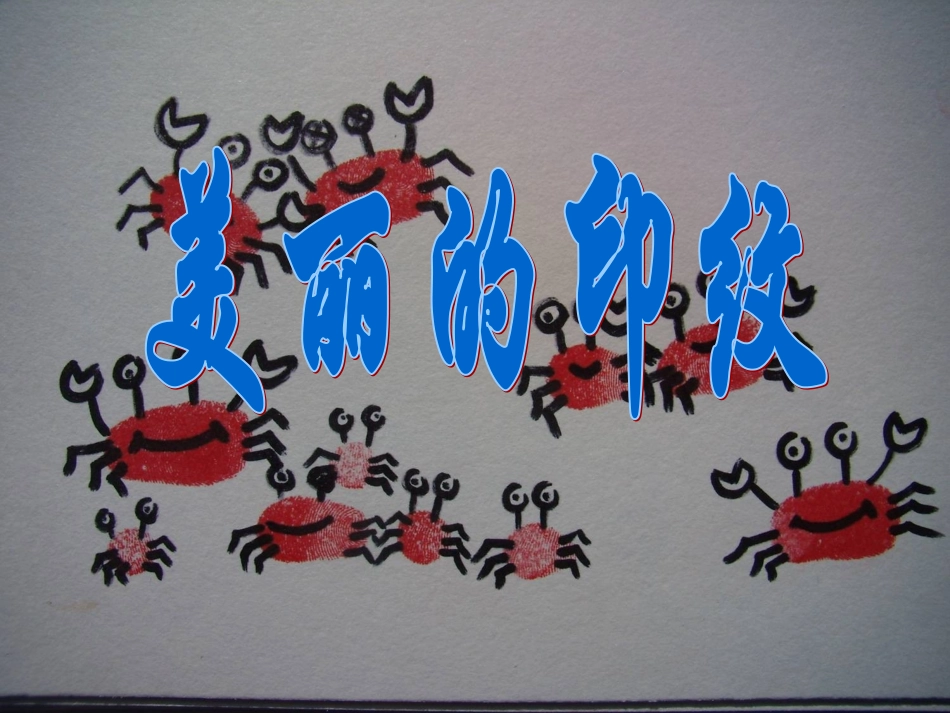 美丽的印纹